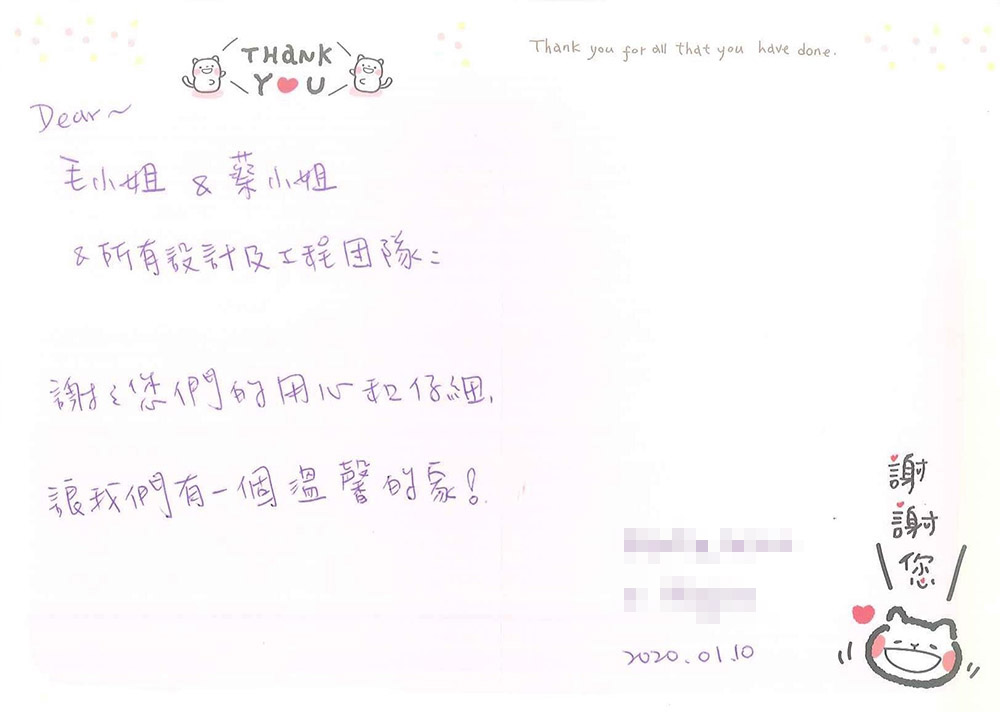 THANK
YOU
Thank you for all that you have done.
Dear~
毛小姐 & 蔡小姐
& 所有設計及工程团隊:
謝々您們的用心和仔細,
讓我們有一個溫馨的家!
謝
謝
您
2020.01.10